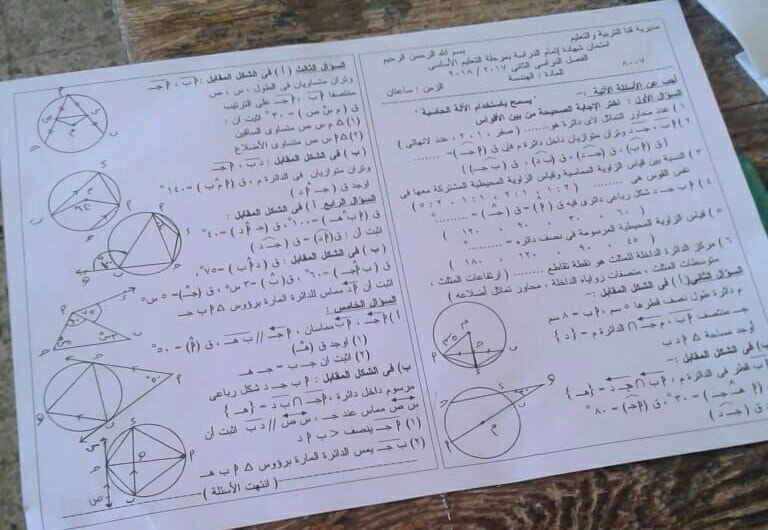 مديرية قنا التربية والتعليم
بسم الله الرحمن الرحيم
امتحان شهادة إتمام الدراسة بمرحلة التعليم الأساسى
الفصل الدراسى الثانى ٢٠١٧ / ٢٠١٨
المادة : الهندسة
الزمن : ساعتان
أجب عن الأسئلة الآتية :-
" يسمح باستخدام الآلة الحاسبة "
السؤال الأول : اختر الإجابة الصحيحة من بين الأقواس
١ ) عدد محاور التماثل لأى دائرة هو ....... ( صفر ، ١ ، ٢ ، عدد لانهائى )
٢ ) أب ، جـ د وتران متوازيان داخل دائرة م فإن ق ( أ جـ ) = .......
( ق ( أ ب ) ، ق ( جـ د ) ، ق ( ب د ) ، ق ( ب جـ ) )
٣ ) النسبة بين قياس الزاوية المماسية وقياس الزاوية المحيطية المشتركة معها فى
نفس القوس هى .......
٤ ) أ ب جـ د شكل رباعى دائرى فيه ق ( أ ) = ق ( جـ ) = .......°
( ٦٠ ، ٣٠ ، ٩٠ ، ١٢٠ )
٥ ) قياس الزاوية المحيطية المرسومة فى نصف دائرة = .......°
( ٤٥ ، ٩٠ ، ١٢٠ ، ١٨٠ )
٦ ) مركز الدائرة الداخلة للمثلث هو نقطة تقاطع ....... ( ارتفاعات المثلث ،
متوسطات المثلث ، منصفات زواياه الداخلة ، محاور تماثل أضلاعه )
السؤال الثانى ( أ ) فى الشكل المقابل :-
م دائرة طول نصف قطرها ٥ سم ، أ ب = ٨ سم
جـ منتصف أ ب ، م جـ ∩ الدائرة م = { د }
أوجد مساحة △ أ د ب
ب ) فى الشكل المقابل :-
أ ب قطر فى الدائرة م ، أ ب ∩ جـ د = { هـ }
ق ( أ هـ جـ ) = ٣٠° ، ق ( أ جـ ) = ٨٠°
ق ( جـ د )
السؤال الثالث ( أ ) فى الشكل المقابل : أ ب ، أ جـ
وتران متساويان فى الطول ، س ، ص
منتصفا أ ب ، أ جـ على الترتيب
ق ( م س ص ) = ٣٠° اثبت أن :
(١) △ م س ص متساوى الساقين
(٢) △ أ س ص متساوى الأضلاع
( ب ) فى الشكل المقابل : د ب ، أ جـ
وتران متوازيان فى الدائرة م ، ق ( أ م ب ) = ١٤٠°
أوجد ق ( جـ أ د )
السؤال الرابع أ ) فى الشكل المقابل :
ق ( أ ب هـ ) = ١٠٠° ، ق ( جـ أ د ) = ٤٠°
اثبت أن : ق ( أ د ) = ق ( جـ د )
( ب ) فى الشكل المقابل : ق ( د أ ب ) = ٧٥°
ق ( ب أ جـ ) = ٦٠° ، ق ( ب ) = ٣ س° ، ق ( جـ ) = ٥ س°
اثبت أن أ د مماس للدائرة المارة برؤوس △ أ ب جـ
السؤال الخامس :
أ ) أ جـ ، أ ب مماسان ، أ جـ // ب هـ ، ق ( أ ) = ٥٠°
(١) أوجد ق ( هـ )
(٢) اثبت أن جـ ب = جـ هـ
ب ) فى الشكل المقابل : أ ب جـ د شكل رباعى
مرسوم داخل دائرة ، أ جـ ∩ ب د = { هـ }
س ص مماس عند جـ ، س ص // د ب اثبت أن
(١) أ جـ ينصف < ب أ د
(٢) ب جـ يمس الدائرة المارة برؤوس △ أ ب هـ
( انتهت الأسئلة )